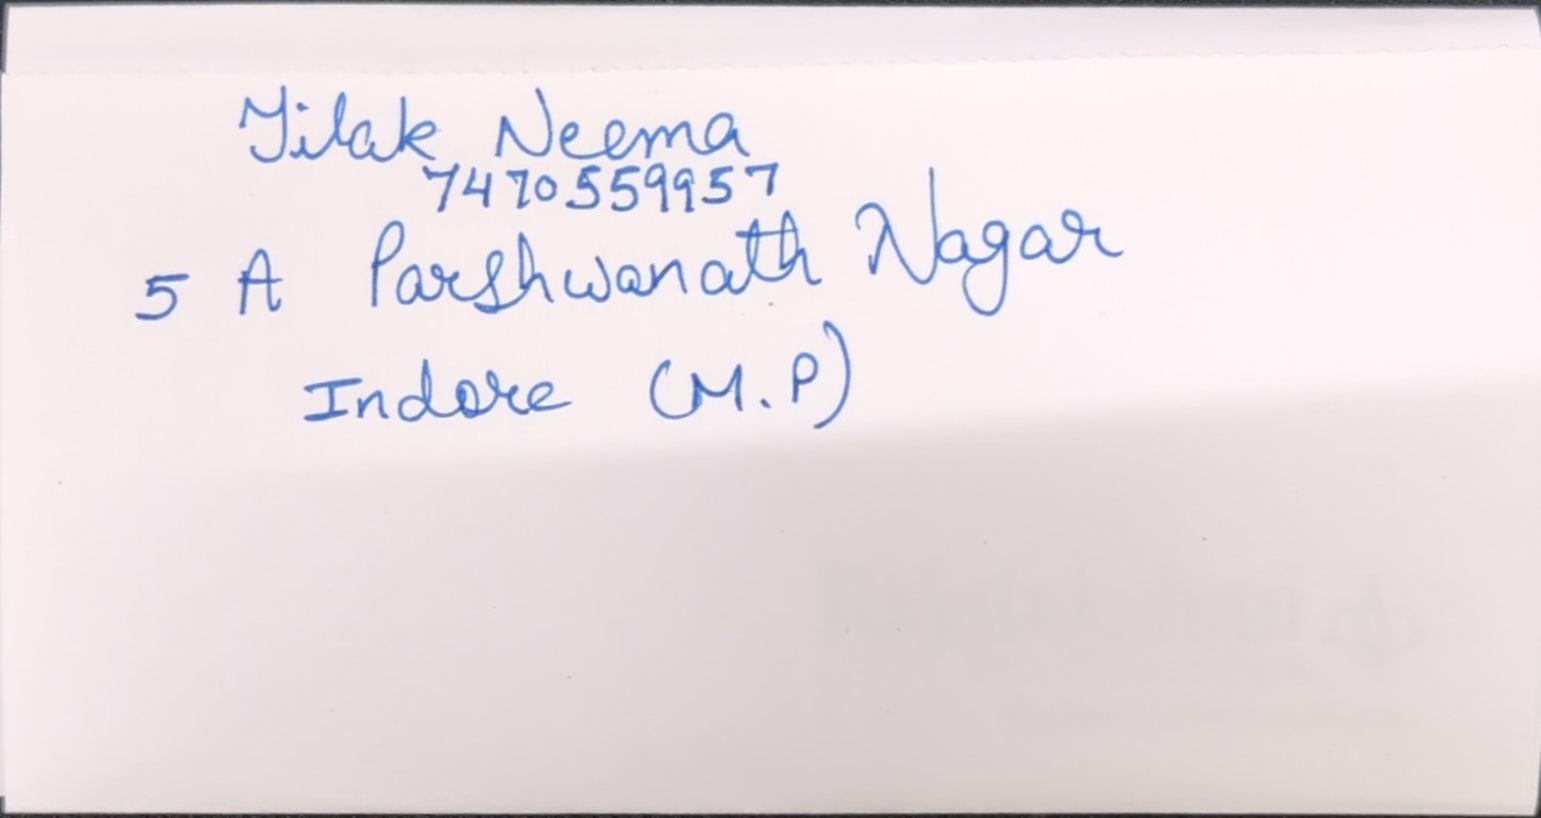 Tilak Neema
7470559957
5 A Parshwanath Nagar
Indore (M.P)